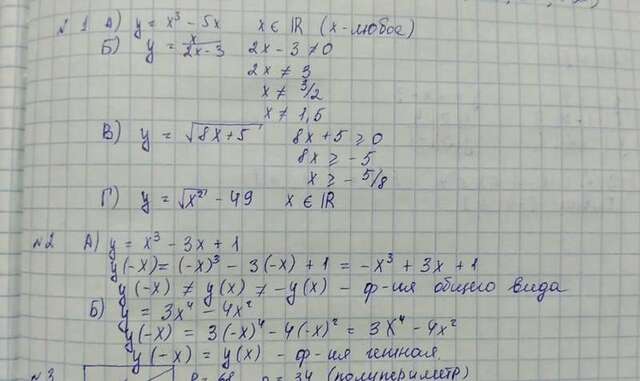 №1 А) y = x³ - 5x x ∈ ℝ (x - любое)
Б) y = x/(2x-3) 2x - 3 ≠ 0
2x ≠ 3
x ≠ 3/2
x ≠ 1,5
В) y = √(8x+5) 8x + 5 ≥ 0
8x ≥ -5
x ≥ -5/8
Г) y = √x² - 49 x ∈ ℝ
№2 А) y = x³ - 3x + 1
y(-x) = (-x)³ - 3(-x) + 1 = -x³ + 3x + 1
y(-x) ≠ y(x) ≠ -y(x) - ф-ия общего вида
Б) y = 3x⁴ - 4x²
y(-x) = 3(-x)⁴ - 4(-x)² = 3x⁴ - 4x²
y(-x) = y(x) - ф-ия четная
№3 p = 34 (полупериметр)